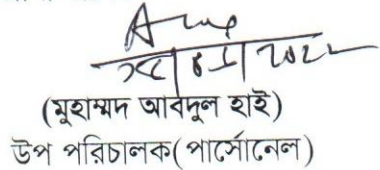 (মুহাম্মদ আবদুল হাই)
উপ পরিচালক(পার্সোনেল)